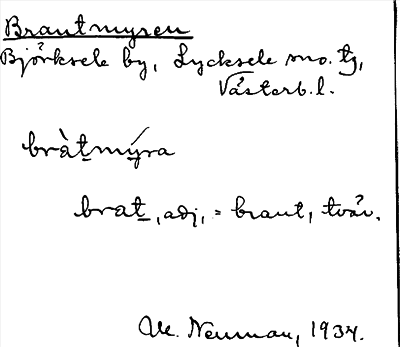 Brantmyren
Björksele by, Lycksele sno. tg,
Västerb. l.
bràtmýra
brat, adj, = brant, tvär.
Neuman, 1934.